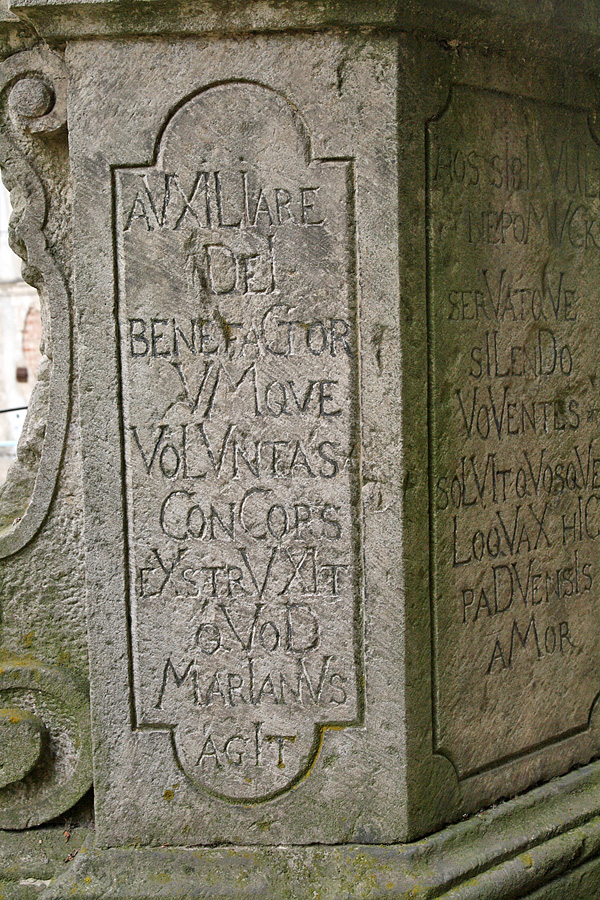 AVXILIARE
DEI
BENEFACTOR
VMQVE
VOLVNTAS
CONCORS
EXSTRVXIT
QVOD
MARIANVS
AGIT
HOS SIBI VUL
NEPOMVCK
SERVATQVE
SILENDO
VOVENTES
SOLVIT QVOSQVE
LOQVAX HIC
PADVENSIS
AMOR